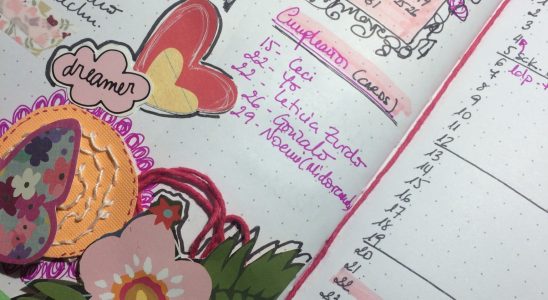 dreamer
Cumpleaños (CARDS)
15- Ceci
22- Yo
22- Leticia Zurdo
26- Gonzalo
29- Noemi
3
4
5
6
7
8
9
10
11
12
13
14
15
16
17
18
19
20
21
22